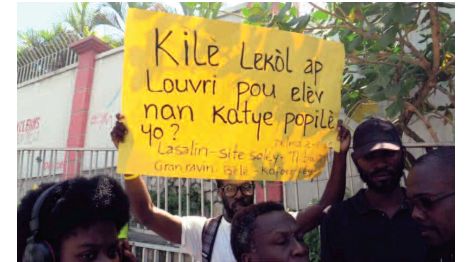 Kilè Lekòl ap
Louvri pou elèv
nan katye popilè
yo?
Lasalin - site solèy - Ti
Gran ravin - Bèlè -